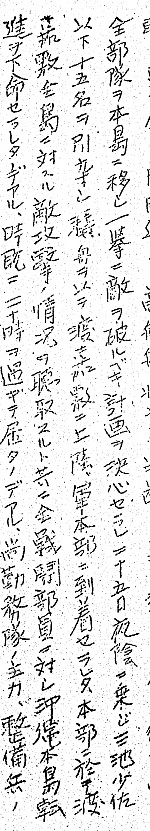 全部隊ヲ本島ニ移し一挙ニ敵ヲ破ルベキ計画ヲ決心セラレ二十五日夜陰ニ乗じ三池少佐
以下十五名ヲ別ニ舟ヲ以テ渡嘉敷ニ上陸軍本部ニ到着セラレタ本部ニ於テ渡
嘉敷全島ニ対スル敵攻撃ノ情況ヲ聴取スルト共ニ全戦闘部員ニ対し沖縄本島転
進ヲ下命セラレタデアル、時既ニ二十時ヲ過ギテ居タノデアル、尚勤務隊ノ主力、整備兵ノ